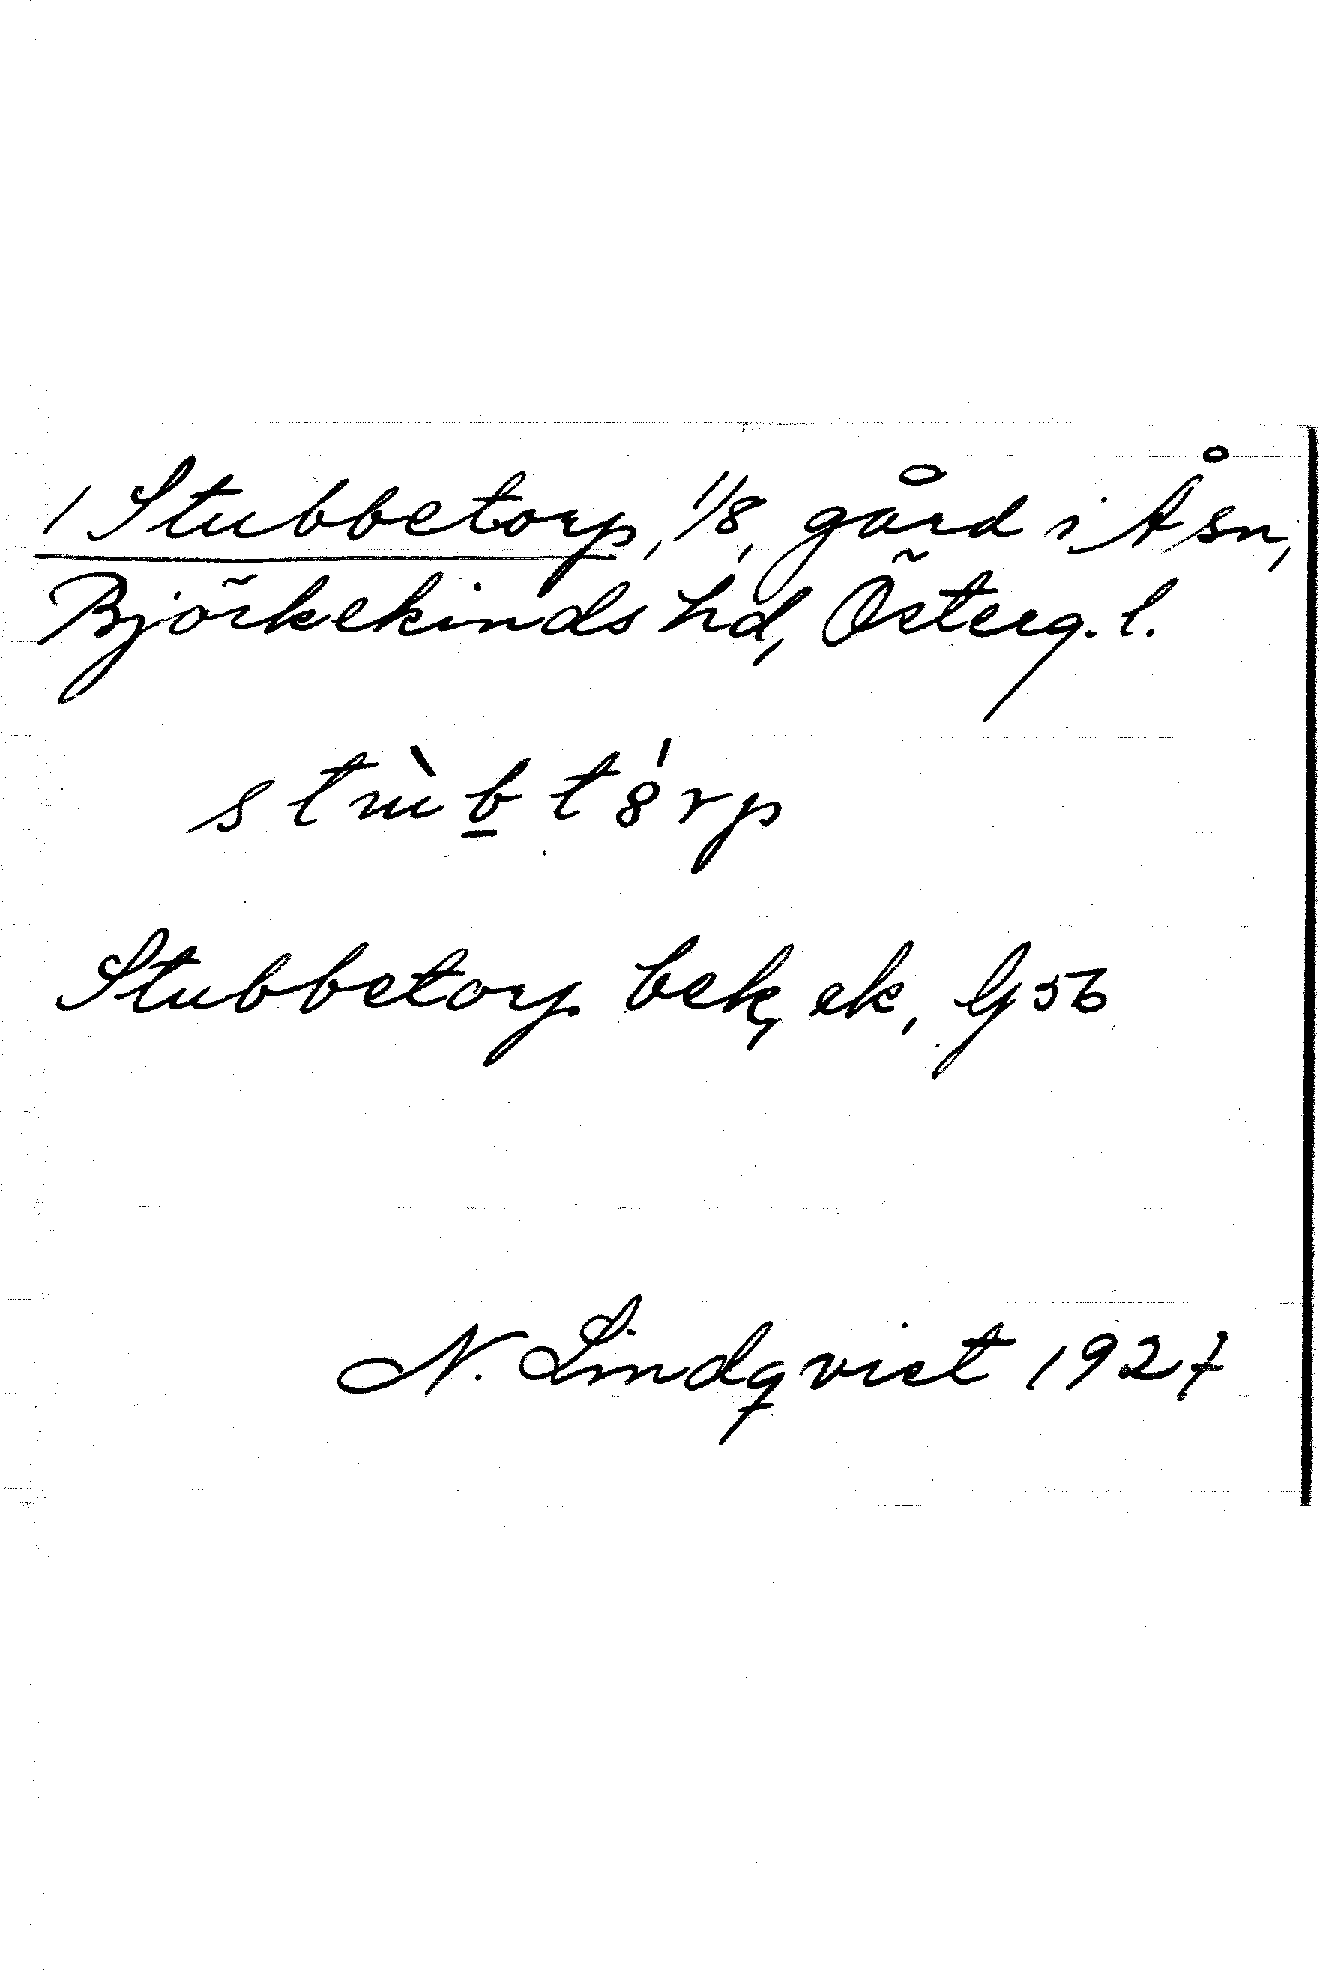 1 Stubbetorp, 1/8, gård i Å sn,
Björkekinds hd, Österg. l.
stùb̲t8́rp
Stubbetorp bek, ek, Gj 56
N. Lindqvist 1927